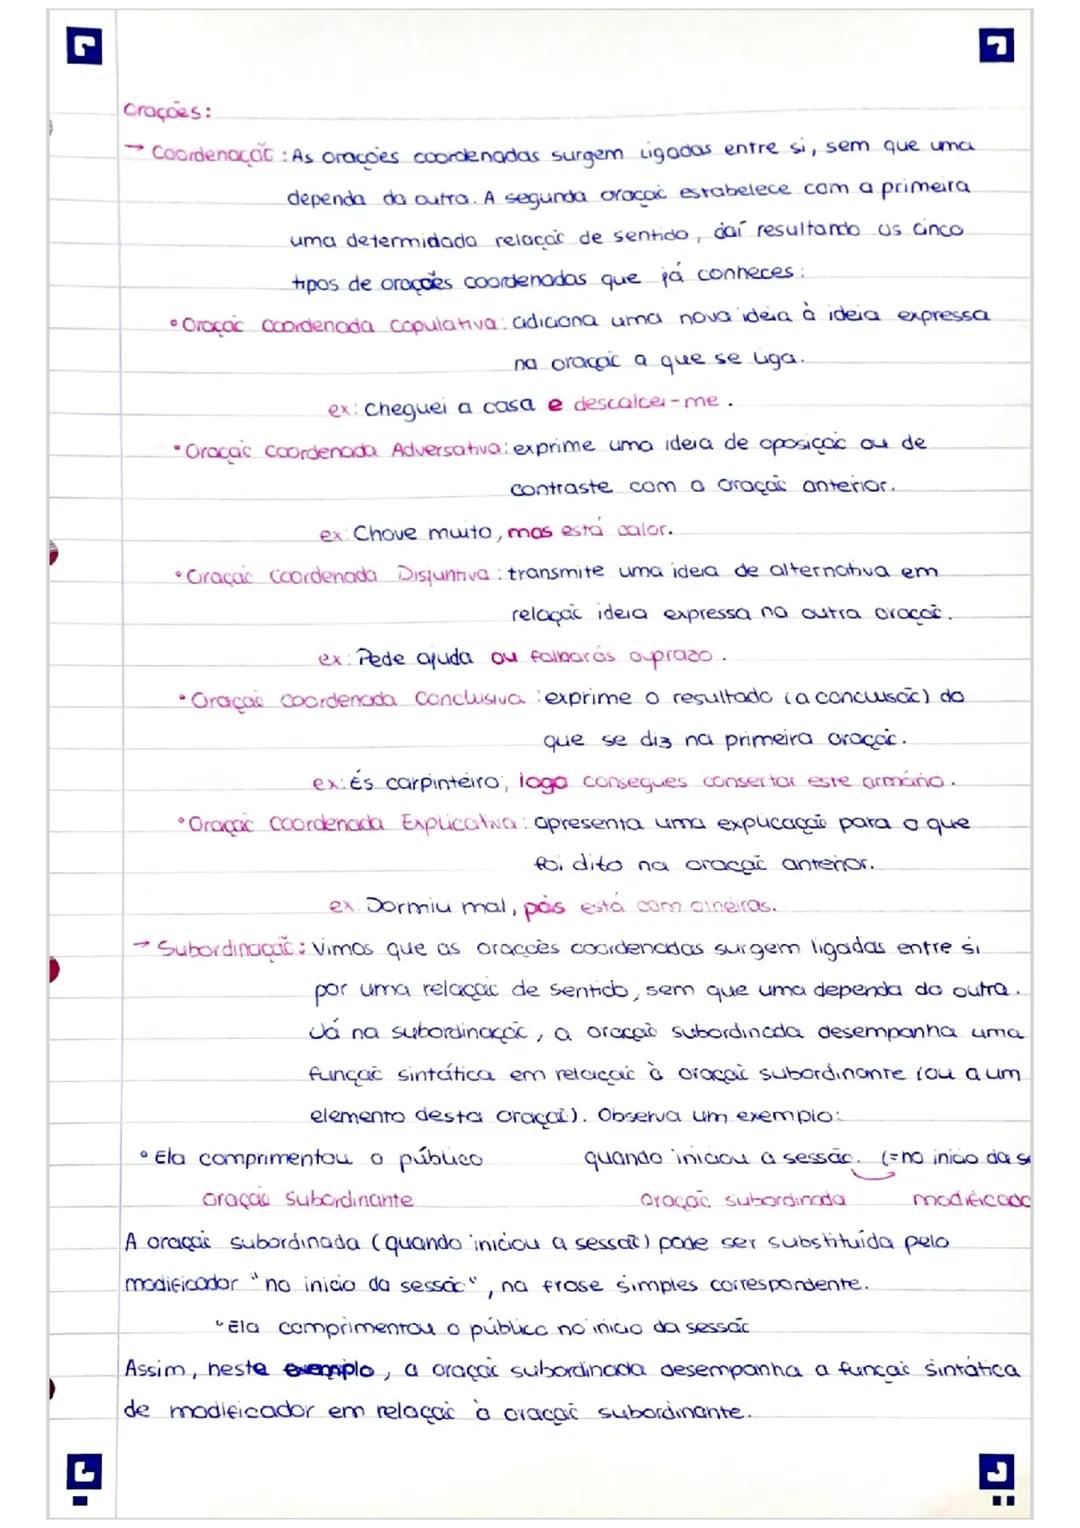 Orações:
→ Coordenação: As orações coordenadas surgem ligadas entre si, sem que uma
dependa da outra. A segunda oração estabelece com a primeira
uma determidada relação de sentido, daí resultando os cinco
tipos de orações coordenadas que já conheces:
• Oração Coordenada Copulativa: adiciona uma nova ideia à ideia expressa
na oração a que se liga.
ex: Cheguei a casa e descalcei-me.
• Oração Coordenada Adversativa: exprime uma ideia de oposição ou de
contraste com a oração anterior.
ex: Chove muito, mas está calor.
• Oração Coordenada Disjuntiva: transmite uma ideia de alternativa em
relação ideia expressa na outra oração.
ex: Pede ajuda ou falharás o prazo.
• Oração Coordenada Conclusiva: exprime o resultado (a conclusão) do
que se diz na primeira oração.
ex: És carpinteiro, logo consegues consertar este armário.
• Oração Coordenada Explicativa: apresenta uma explicação para o que
foi dito na oração anterior.
ex: Dormiu mal, pois está com olheiras.
→ Subordinação: Vimos que as orações coordenadas surgem ligadas entre si
por uma relação de sentido, sem que uma dependa da outra.
Já na subordinação, a oração subordinada desempanha uma
função sintática em relação à oração subordinante (ou a um
elemento desta oração). Observa um exemplo:
• Ela comprimentou o público quando iniciou a sessão. (= no início da s
oração subordinante oração subordinada modificado
A oração subordinada (quando iniciou a sessão) pode ser substituída pelo
modificador "no início da sessão", na frase simples correspondente.
"Ela comprimentou o público no início da sessão
Assim, neste exemplo, a oração subordinada desempanha a função sintática
de modificador em relação à oração subordinante.